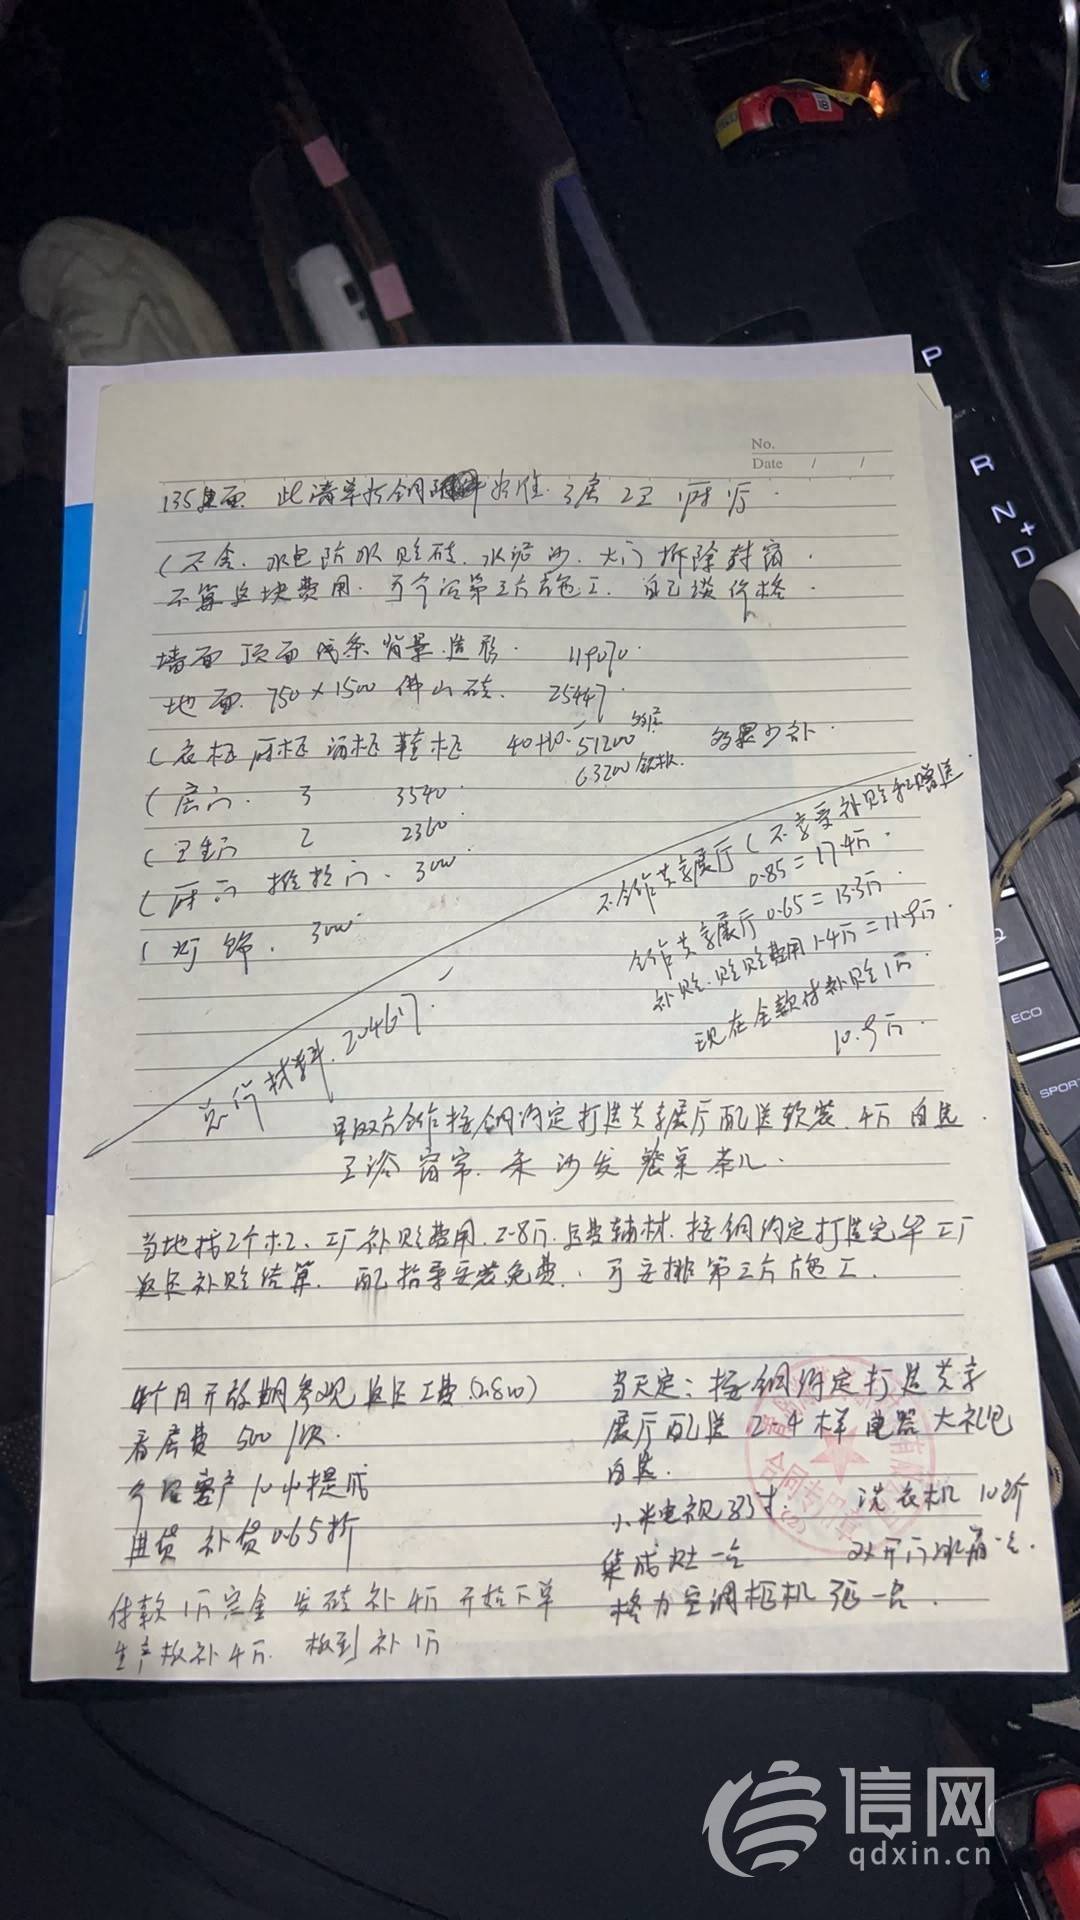 No.
Date / /
135 面 此清单按合同 为准 3房 2卫 厨 厅
(不含. 水电防水 贴砖. 水泥沙. 大门 拆除封窗.
不算这块费用. 可介绍第三方施工. 自己谈价格.
墙面 顶面 线条 背景 造形.
地面. 750×1500 佛山砖. 25447.
(衣柜 厨柜 酒柜 鞋柜 51200 多退少补.
63200
(房门. 3 3540.
(卫生门 2 2360.
(厨门 推拉门. 3000.
(灯饰. 3000
总价材料. 204617.
不合作共享展厅(不享受补贴和赠送
0.85=17.4万.
合作共享展厅0.65=13.3万.
补贴. 费用1.4万=11.9万.
现在全款付补贴1万.
10.9万.
甲双方合作按合同约定打造共享展厅配送软装. 4万 自选.
卫浴 窗帘. 床 沙发 餐桌 茶几.
当地找2个木工、工厂补贴费用. 2.8万. 辅材. 按合同约定打造完毕工厂
返还补贴结算. 配 安装免费. 可安排第三方施工.
个月开放期参观 返还工费(2.8w)
看房费 500/次.
介绍客户 10%提成
进货 补货0.65折
付款 1万定金 发砖补4万 开始下单
生产板补4万. 板到补1万
当天定: 按合同约定打造共享
展厅配送 2-4样电器大礼包
自选.
小米电视 寸. 洗衣机 10公斤
集成灶一台 双开门冰箱一台.
格力空调柜机 3匹一台.
合同专用章
(2)
P
R
N+
D
ECO
SPORT
信网
qdxin.cn